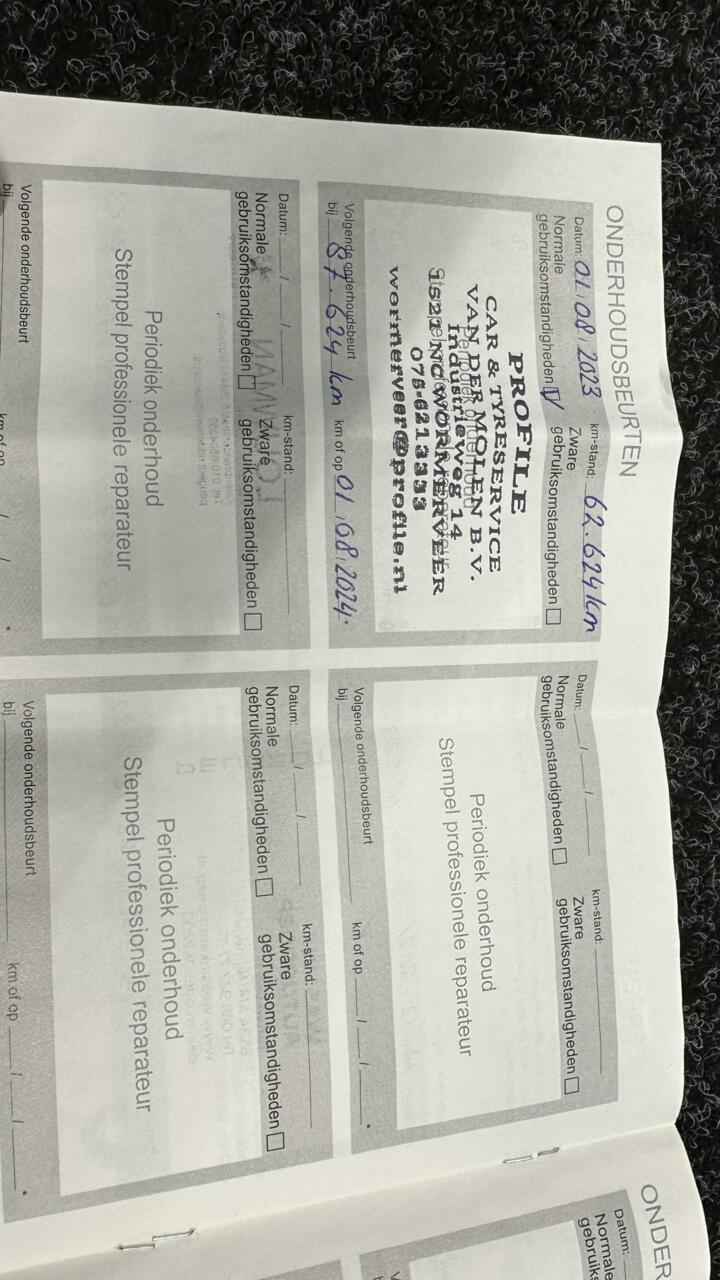 ONDERHOUDSBEURTEN
Datum: 01/08/2023 km-stand: 62.624 km
Normale gebruiksomstandigheden
Zware gebruiksomstandigheden
Periodiek onderhoud
PROFILE
CAR & TYRESERVICE
VAN DER MOLEN B.V.
Industrieweg 14
1521 NC WORMERVEER
075-6213333
wormerveer@profile.nl
Volgende onderhoudsbeurt
bij 87.624 km km of op 01/08/2024.
Datum: / / km-stand:
Normale gebruiksomstandigheden
Zware gebruiksomstandigheden
Periodiek onderhoud
Stempel professionele reparateur
Volgende onderhoudsbeurt
bij km of op / / .
Datum: / / km-stand:
Normale gebruiksomstandigheden
Zware gebruiksomstandigheden
Periodiek onderhoud
Stempel professionele reparateur
Volgende onderhoudsbeurt
bij km of op / / .
Datum: / / km-stand:
Normale gebruiksomstandigheden
Zware gebruiksomstandigheden
Periodiek onderhoud
Stempel professionele reparateur
Volgende onderhoudsbeurt
bij km of op / / .
ONDER
Datum:
Normale
gebruiks